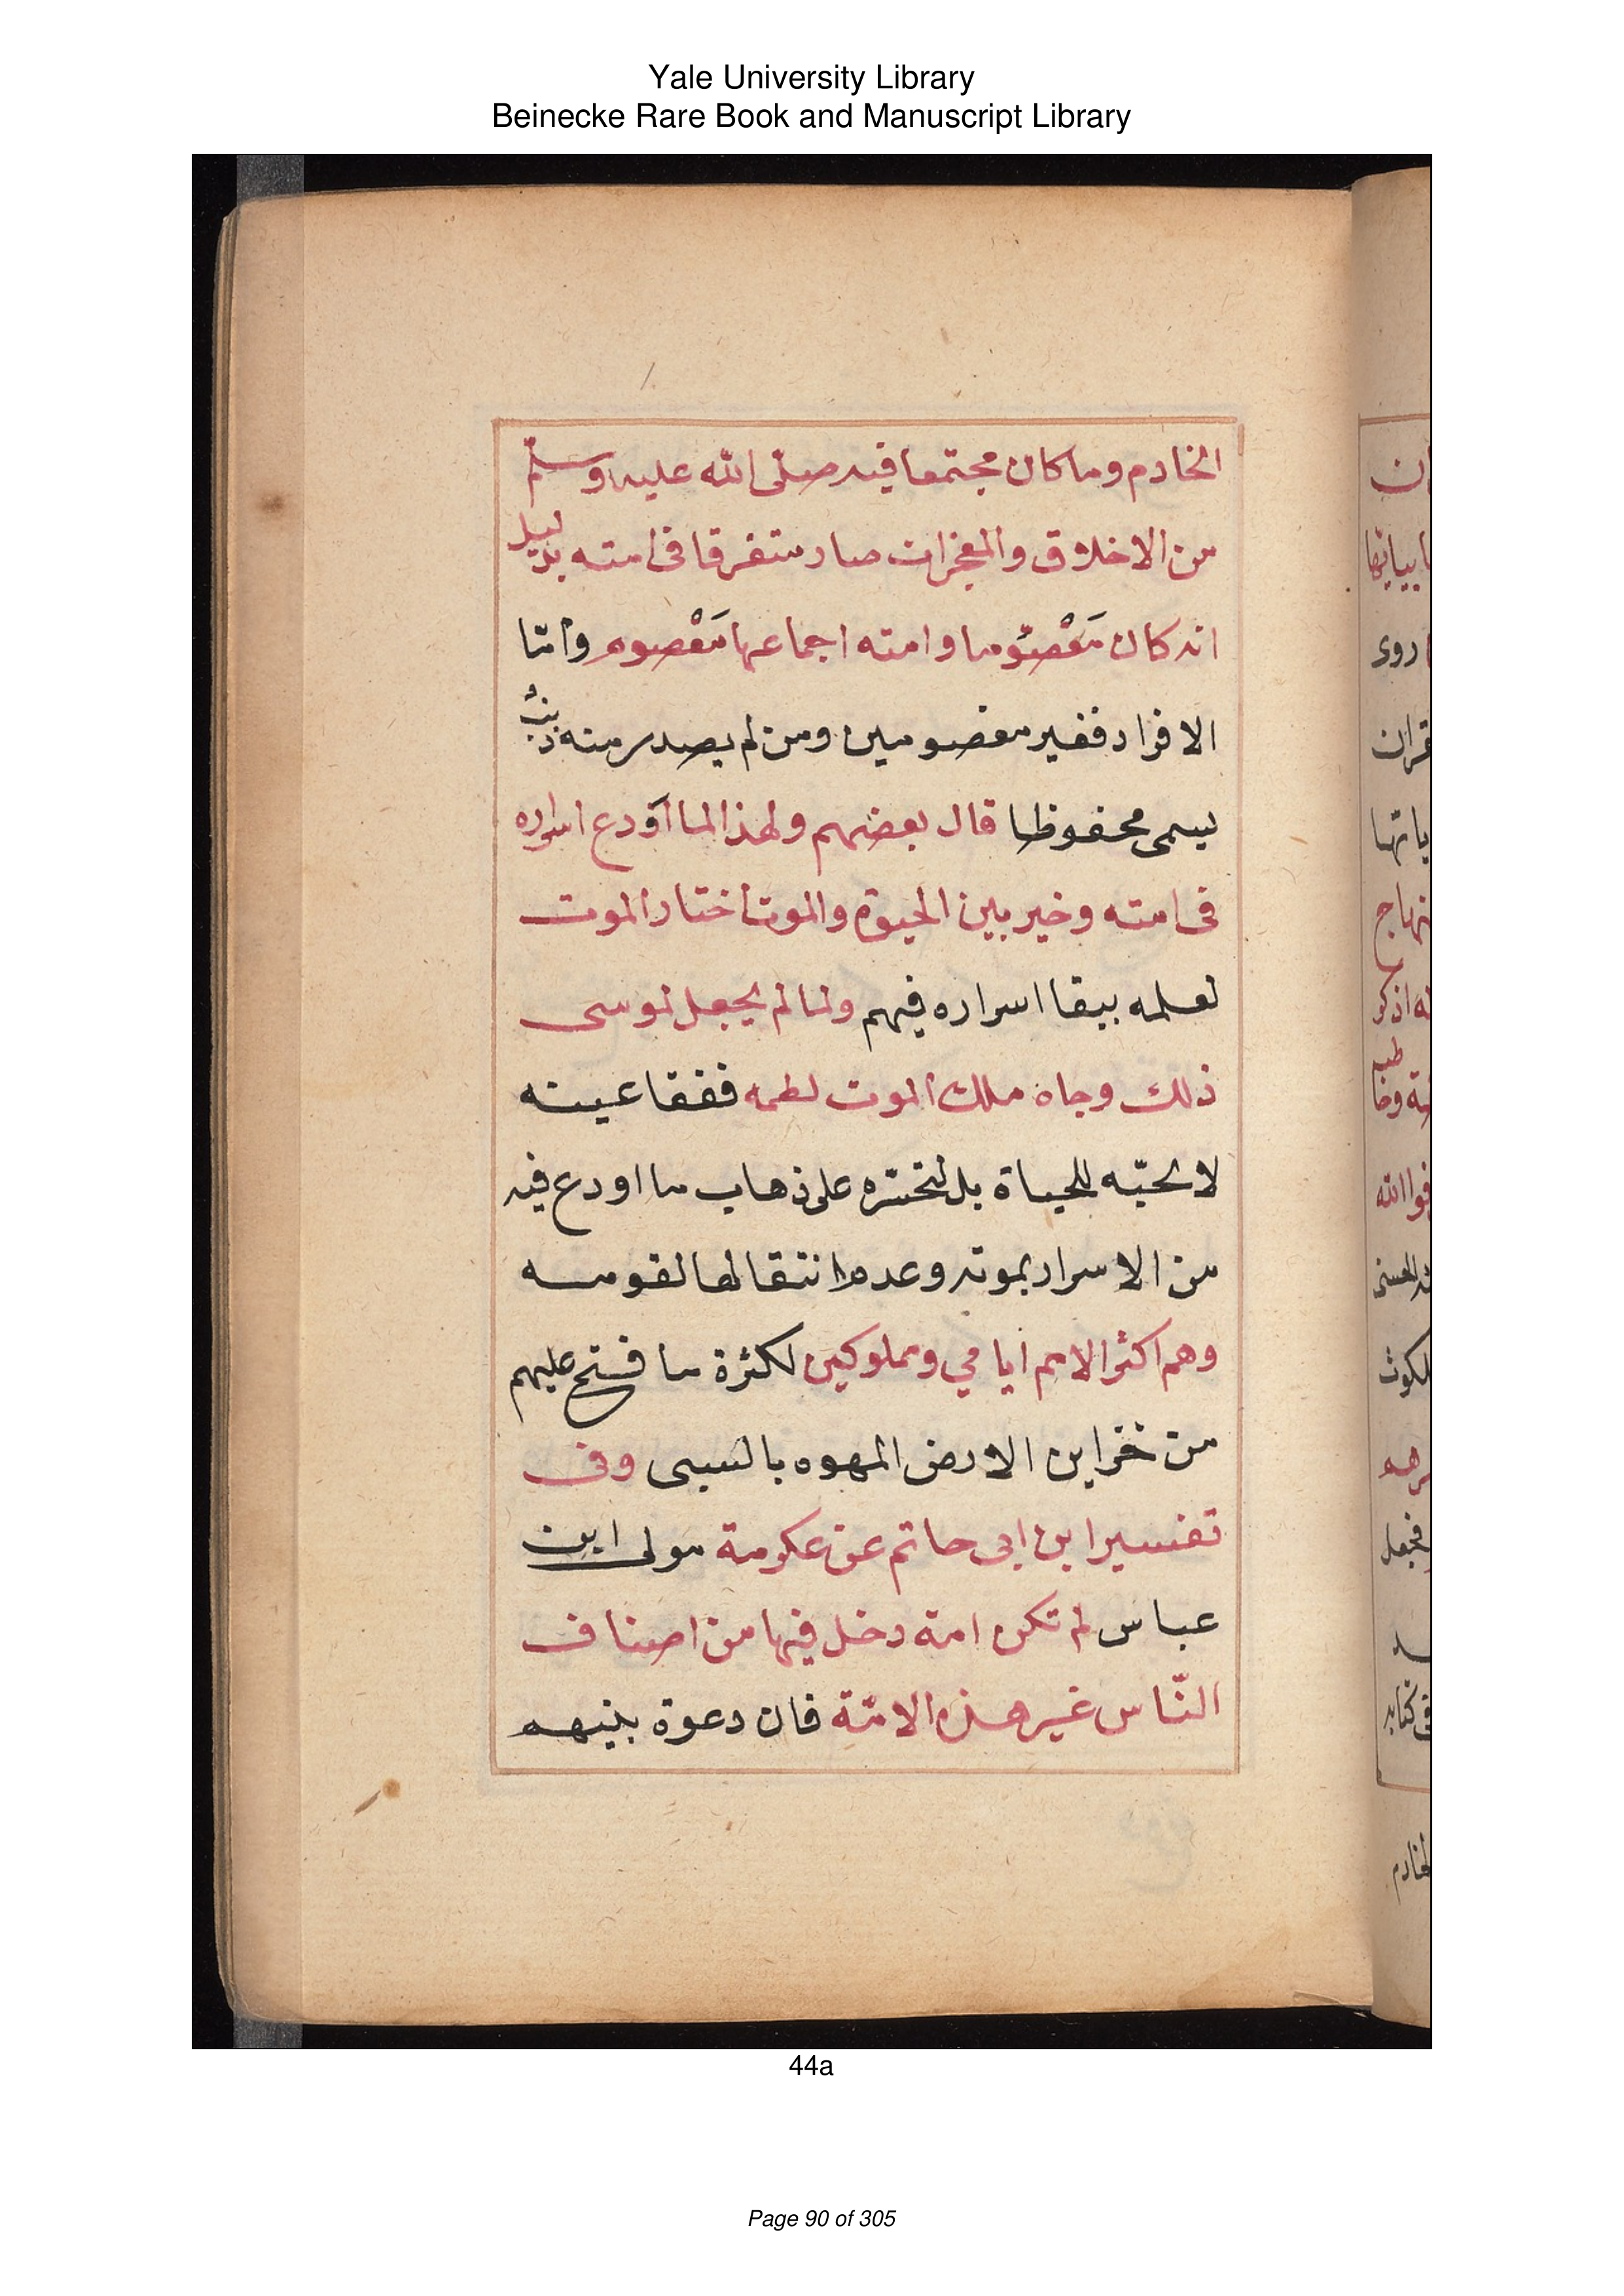 Yale University Library
Beinecke Rare Book and Manuscript Library
الخادم وما كان مجتمعا فيه صلّى الله عليه وسلّم
من الاخلاق والمعجزات صار متفرقا فى امته بدليل
انه كان مَعْصوُما وامته اجماعها مَعْصوم وامّا
الافراد فغير معصومين ومن لم يصدر منه ذنبٌ
يسمى محفوظا قال بعضهم ولهذا لما اَودع اسراره
فى امته وخير بين الحيوة والموت اختار الموت
لعلمه ببقا اسراره فيهم ولما لم يجعل لموسى
ذلك وجاه ملك الموت لطمه ففقا عينه
لا لحبّه للحياة بل لتحسّره على ذهاب ما اودع فيه
من الاسرار بموته وعدم انتقالها لقومه
وهم اكثر الامم ايامي ومملوكين لكثرة ما فتح عليهم
من خزاين الارض المهوه بالسبى وفى
تفسير ابن ابى حاتم عن عكرمة مولى ابن
عباس لم تكن امة دخل فيها من اصناف
النّاس غير هذه الامّة فان دعوة بنيهم
ان
بياتها
روى
قران
ياتها
نهاج
له اذكر
فوا الله
لكوت
فجعل
فى كتابه
الخادم
44a
Page 90 of 305